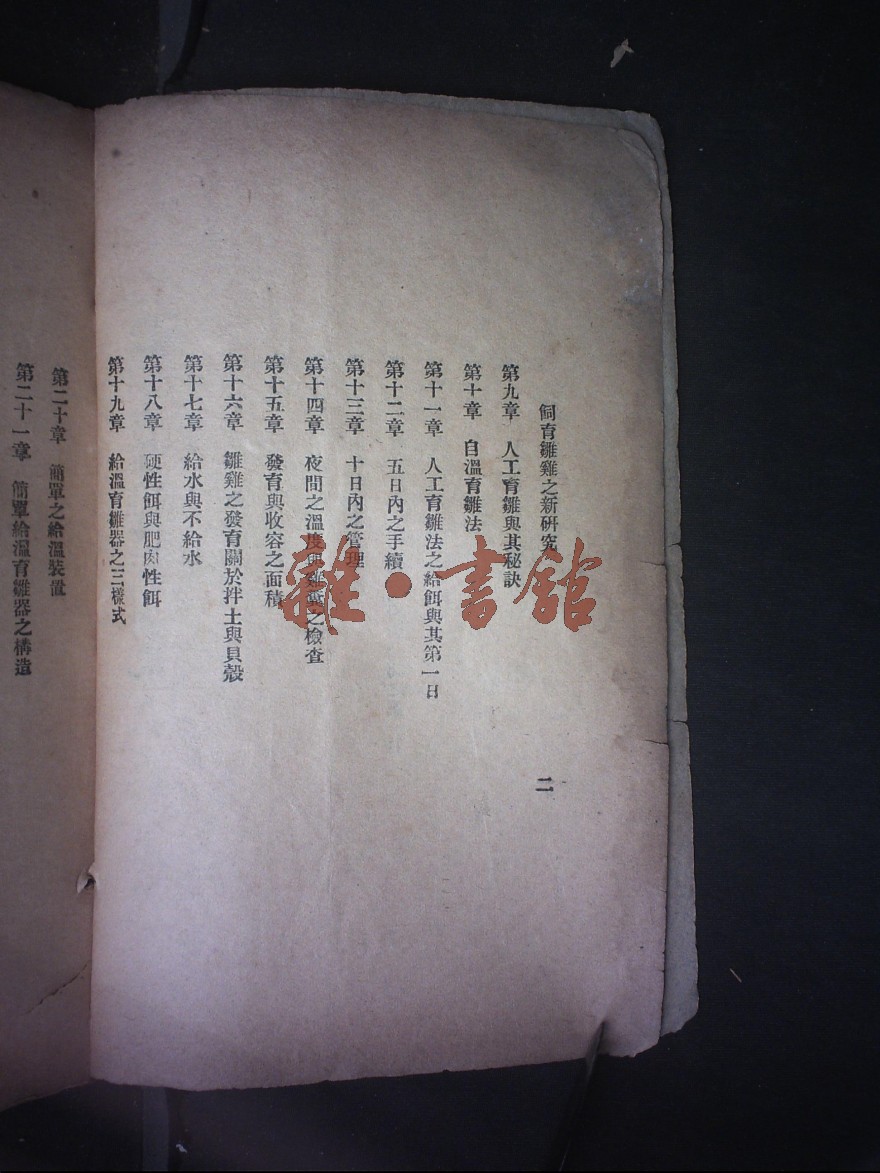 飼育雛雞之新研究
第九章　人工育雛與其秘訣
第十章　自溫育雛法
第十一章　人工育雛法之給餌與其第一日
第十二章　五日內之手續
第十三章　十日內之管理
第十四章　夜間之溫度與雞糞之檢查
第十五章　發育與收容之面積
第十六章　雛雞之發育關於拌土與貝殼
第十七章　給水與不給水
第十八章　硬性餌與肥肉性餌
第十九章　給溫育雛器之三樣式
二
第二十章　簡單之給溫裝置
第二十一章　簡單給溫育雛器之構造
雜·書館